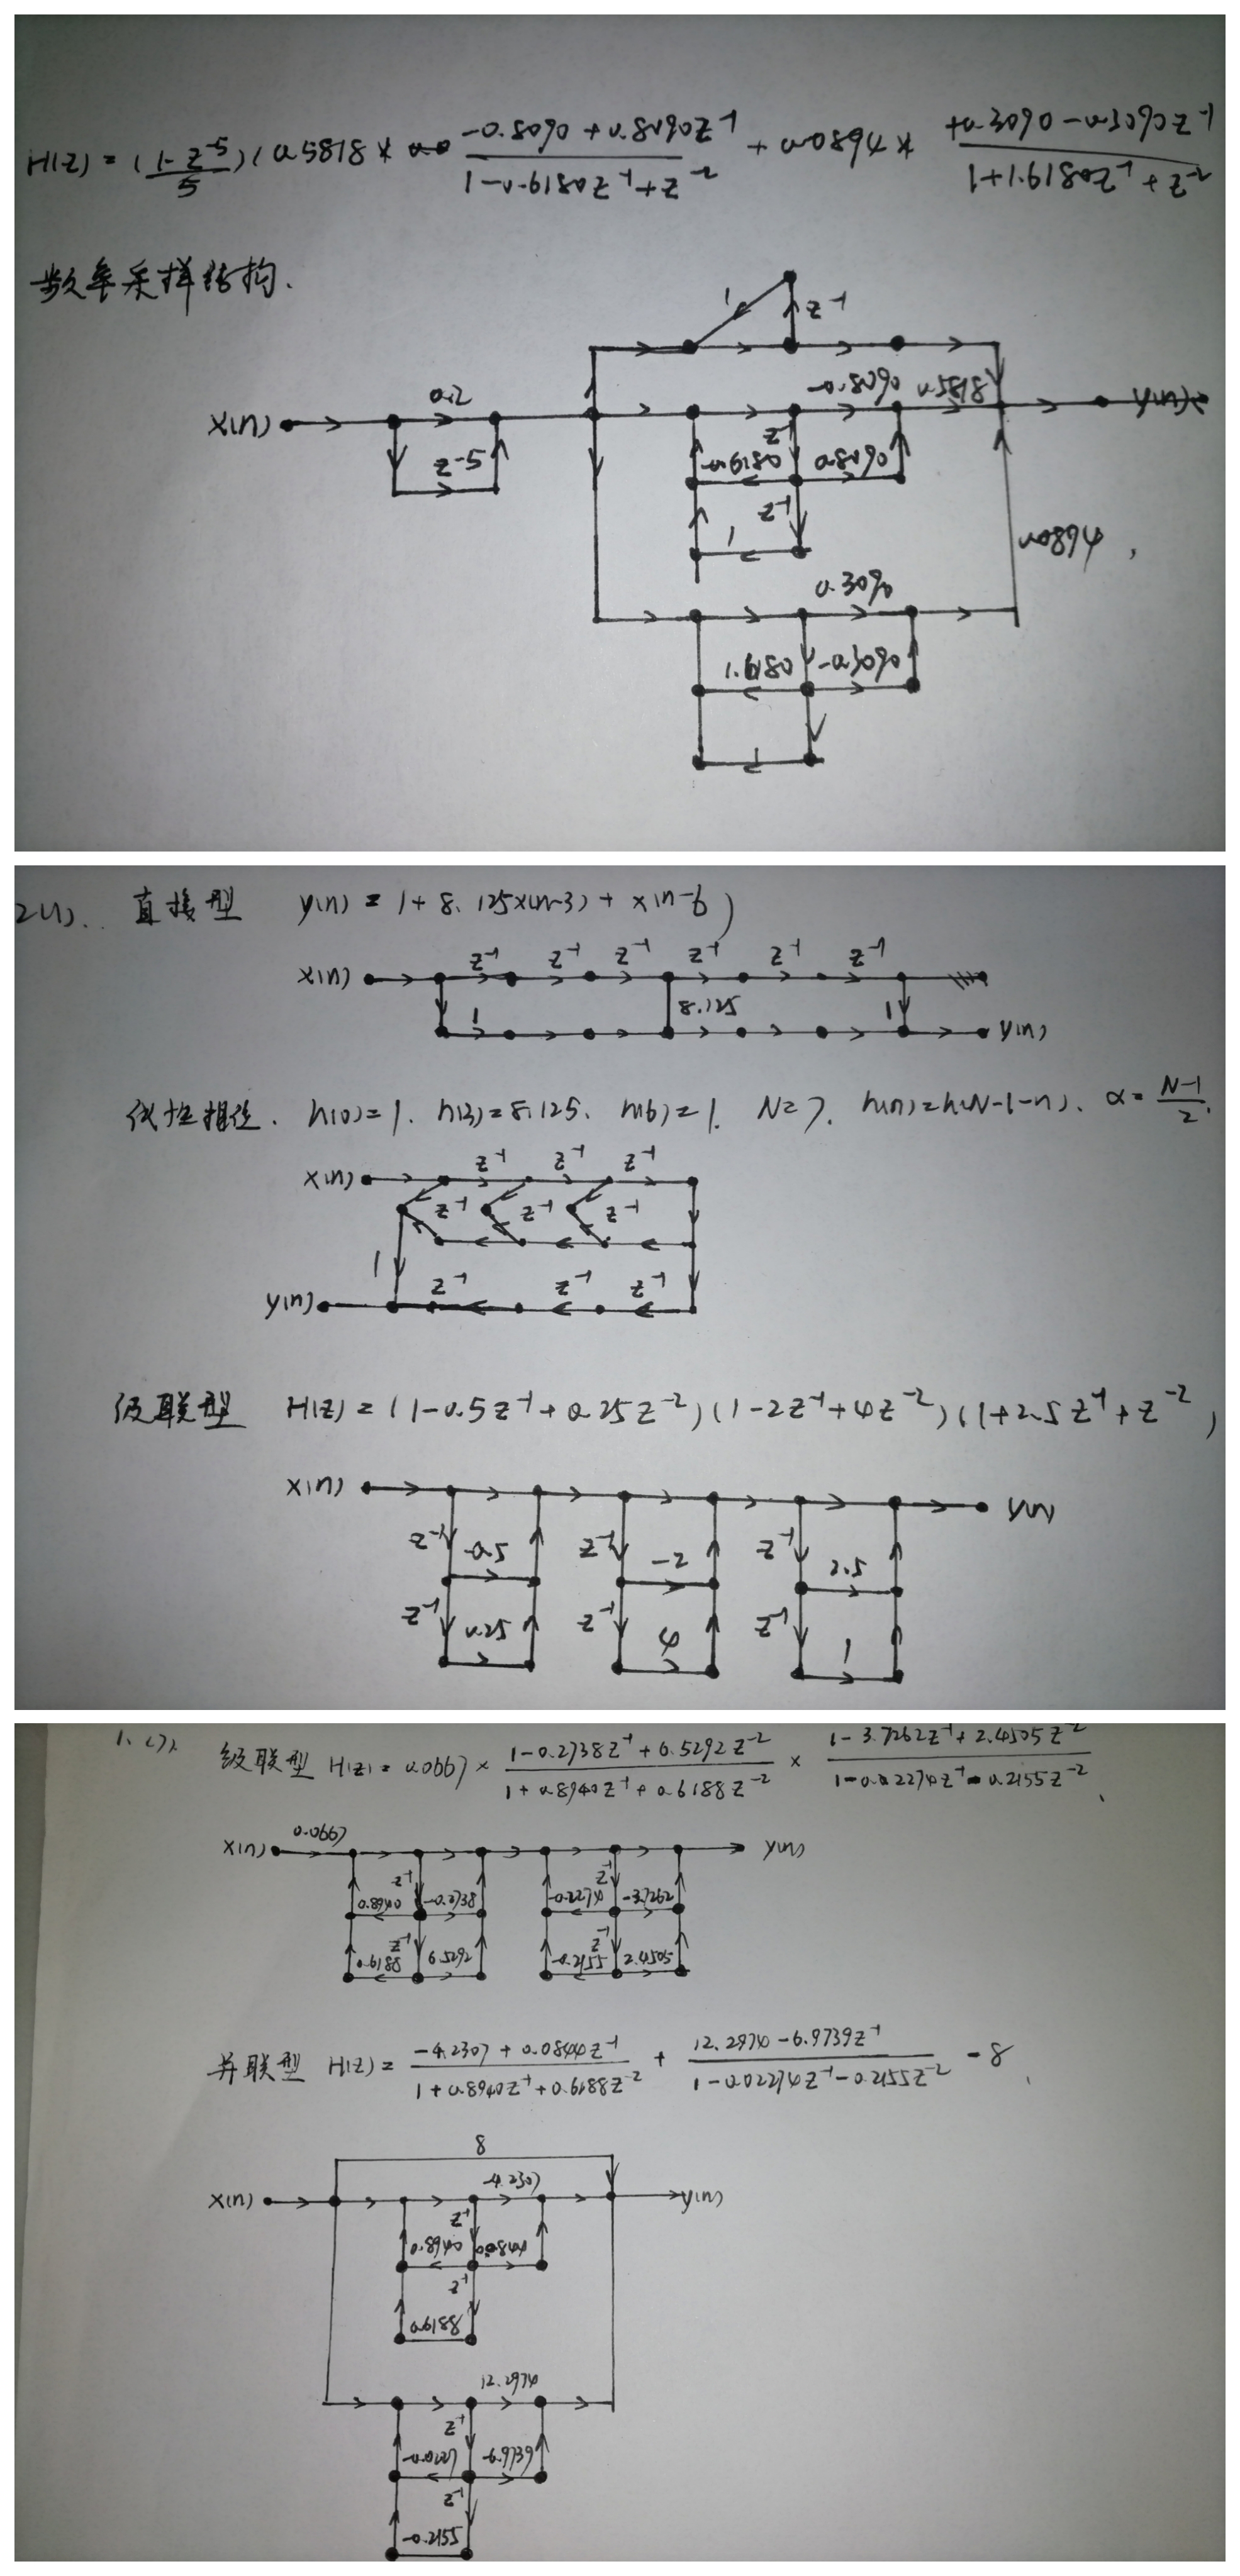 H(z) = (1-z^-5)/5 (0.5818 * (-0.8090 + 0.8090z^-1)/(1-0.6180z^-1+z^-2) + 0.0894 * (+0.3090-0.3090z^-1)/(1+1.6180z^-1+z^-2)
频率采样结构.
1 z^-1
x(n) 0.2 -0.8090 0.5818 y(n)
z^-5 z^-1 -0.6180 0.8090
z^-1
1 0.0894,
0.3090
1.6180 -0.3090
1
2(1). 直接型 y(n) = 1+8.125x(n-3)+x(n-6)
x(n) z^-1 z^-1 z^-1 z^-1 z^-1 z^-1
1 8.125 1 y(n)
线性相位. h(0)=1. h(3)=8.125. h(6)=1. N=7. h(n)=h(N-1-n). α=(N-1)/2.
x(n) z^-1 z^-1 z^-1
z^-1 z^-1 z^-1
1
y(n) z^-1 z^-1 z^-1
级联型 H(z)=(1-0.5z^-1+0.25z^-2)(1-2z^-1+4z^-2)(1+2.5z^-1+z^-2)
x(n) y(n)
z^-1 -0.5 z^-1 -2 z^-1 2.5
z^-1 0.25 z^-1 4 z^-1 1
级联型 H(z)=0.0667× (1-0.2738z^-1+6.5292z^-2)/(1+0.8940z^-1+0.6188z^-2) × (1-3.7262z^-1+2.4505z^-2)/(1-0.02274z^-1-0.2155z^-2)
x(n) 0.0667 y(n)
z^-1 z^-1
0.8940 -0.2738 -0.2274 -3.7262
z^-1 z^-1
0.6188 6.5292 -0.2155 2.4505
并联型 H(z)= (-4.2307+0.0844z^-1)/(1+0.8940z^-1+0.6188z^-2) + (12.2974-6.9739z^-1)/(1-0.02274z^-1-0.2155z^-2) -8
8
x(n) -4.2307 y(n)
z^-1
0.8940 0.0844
z^-1
0.6188
12.2974
z^-1
-0.0227 -6.9739
z^-1
-0.2155